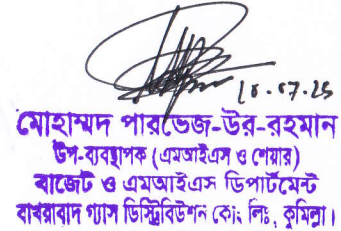 মোহাম্মদ পারভেজ-উর-রহমান
উপ-ব্যবস্থাপক (এমআইএস ও শেয়ার)
বাজেট ও এমআইএস ডিপার্টমেন্ট
বাখরাবাদ গ্যাস ডিস্ট্রিবিউশন কোং লিঃ, কুমিল্লা।